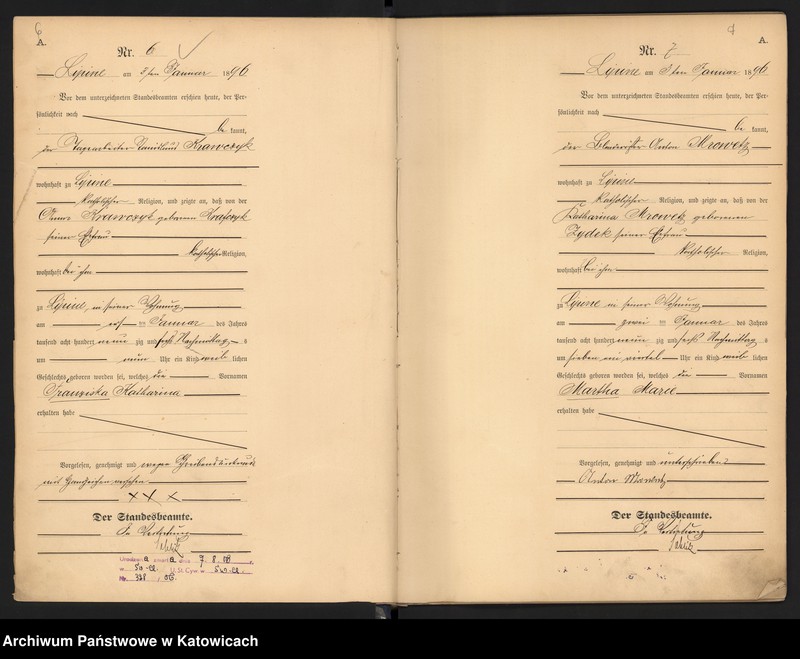 6
A.
Nr. 6
Lipine am 3ten Januar 1896.
Vor dem unterzeichneten Standesbeamten erschien heute, der Per-
sönlichkeit nach
be kannt,
der Krawczyk
wohnhaft zu Lipine
katholischer Religion, und zeigte an, daß von der
Krawczyk geborenen
seiner Ehefrau
katholischer Religion,
wohnhaft bei ihm
zu Lipine, in seiner Wohnung,
am ten Januar des Jahres
tausend acht hundert neun zig und sechs Nachmittag s
um neun Uhr ein Kind weib lichen
Geschlechts geboren worden sei, welches die Vornamen
Franziska Katharina
erhalten habe
Vorgelesen, genehmigt und wegen
mit Handzeichen versehen
X X X
Der Standesbeamte.
In Vertretung
7. 8. 08
U. St. Cyw. w
Nr. 328
7
A.
Nr. 7
Lipine am 3ten Januar 1896
Vor dem unterzeichneten Standesbeamten erschien heute, der Per-
sönlichkeit nach
be kannt,
der Anton Mrowetz
wohnhaft zu Lipine
katholischer Religion, und zeigte an, daß von der
Katharina Mrowetz geborenen
Zydek seiner Ehefrau
katholischer Religion,
wohnhaft bei ihm
zu Lipine in seiner Wohnung,
am zwei ten Januar des Jahres
tausend acht hundert neun zig und sechs Nachmittag s
um sieben ein viertel Uhr ein Kind weib lichen
Geschlechts geboren worden sei, welches die Vornamen
Martha Marie
erhalten habe
Vorgelesen, genehmigt und unterschrieben
Anton
Der Standesbeamte.
In Vertretung
Archiwum Państwowe w Katowicach